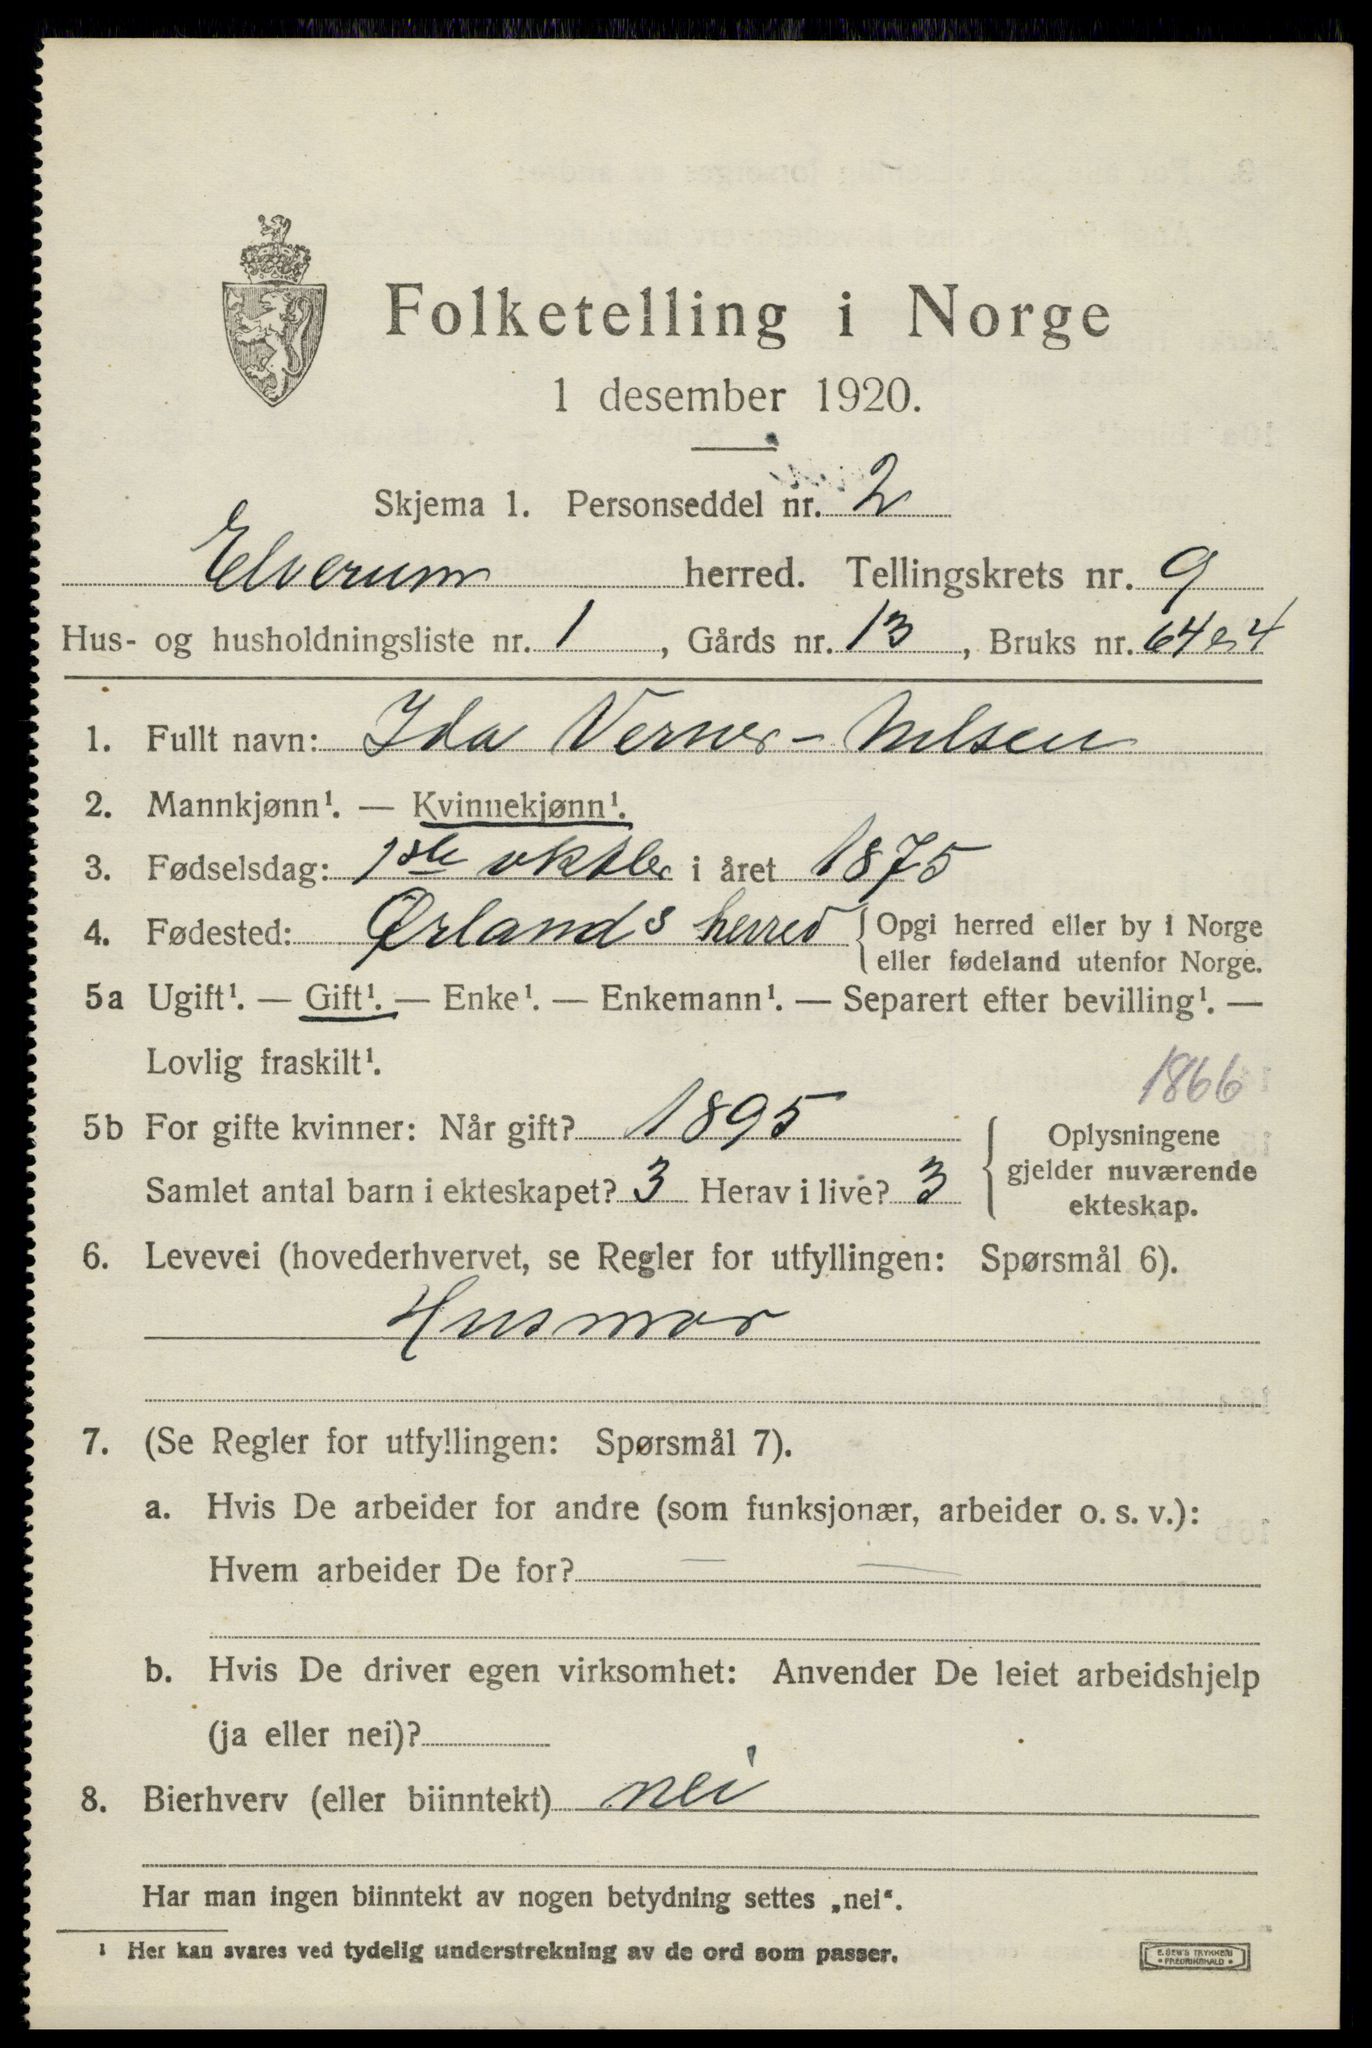 Folketelling i Norge
1 desember 1920.
Skjema 1. Personseddel nr. 2
Elverum herred. Tellingskrets nr. 9
Hus- og husholdningsliste nr. 1, Gårds nr. 13, Bruks nr. 64 4
1. Fullt navn: Ida Verner-Nilsen
2. Mannkjønn¹. — Kvinnekjønn¹.
3. Fødselsdag: 1ste oktber i året 1875
4. Fødested: Ørlands herred { Opgi herred eller by i Norge
eller fødeland utenfor Norge.
5a Ugift¹. — Gift¹. — Enke¹. — Enkemann¹. — Separert efter bevilling¹. —
Lovlig fraskilt¹.
1866
5b For gifte kvinner: Når gift? 1895
Samlet antal barn i ekteskapet? 3 Herav i live? 3
{ Oplysningene
gjelder nuværende
ekteskap.
6. Levevei (hovederhvervet, se Regler for utfyllingen: Spørsmål 6).
Husmor
7. (Se Regler for utfyllingen: Spørsmål 7).
a. Hvis De arbeider for andre (som funksjonær, arbeider o. s. v.):
Hvem arbeider De for? — —
b. Hvis De driver egen virksomhet: Anvender De leiet arbeidshjelp
(ja eller nei)?
8. Bierhverv (eller biinntekt) nei
Har man ingen biinntekt av nogen betydning settes „nei“.
¹ Her kan svares ved tydelig understrekning av de ord som passer.
E. SEM'S TRYKKERI
FREDRIKSHALD